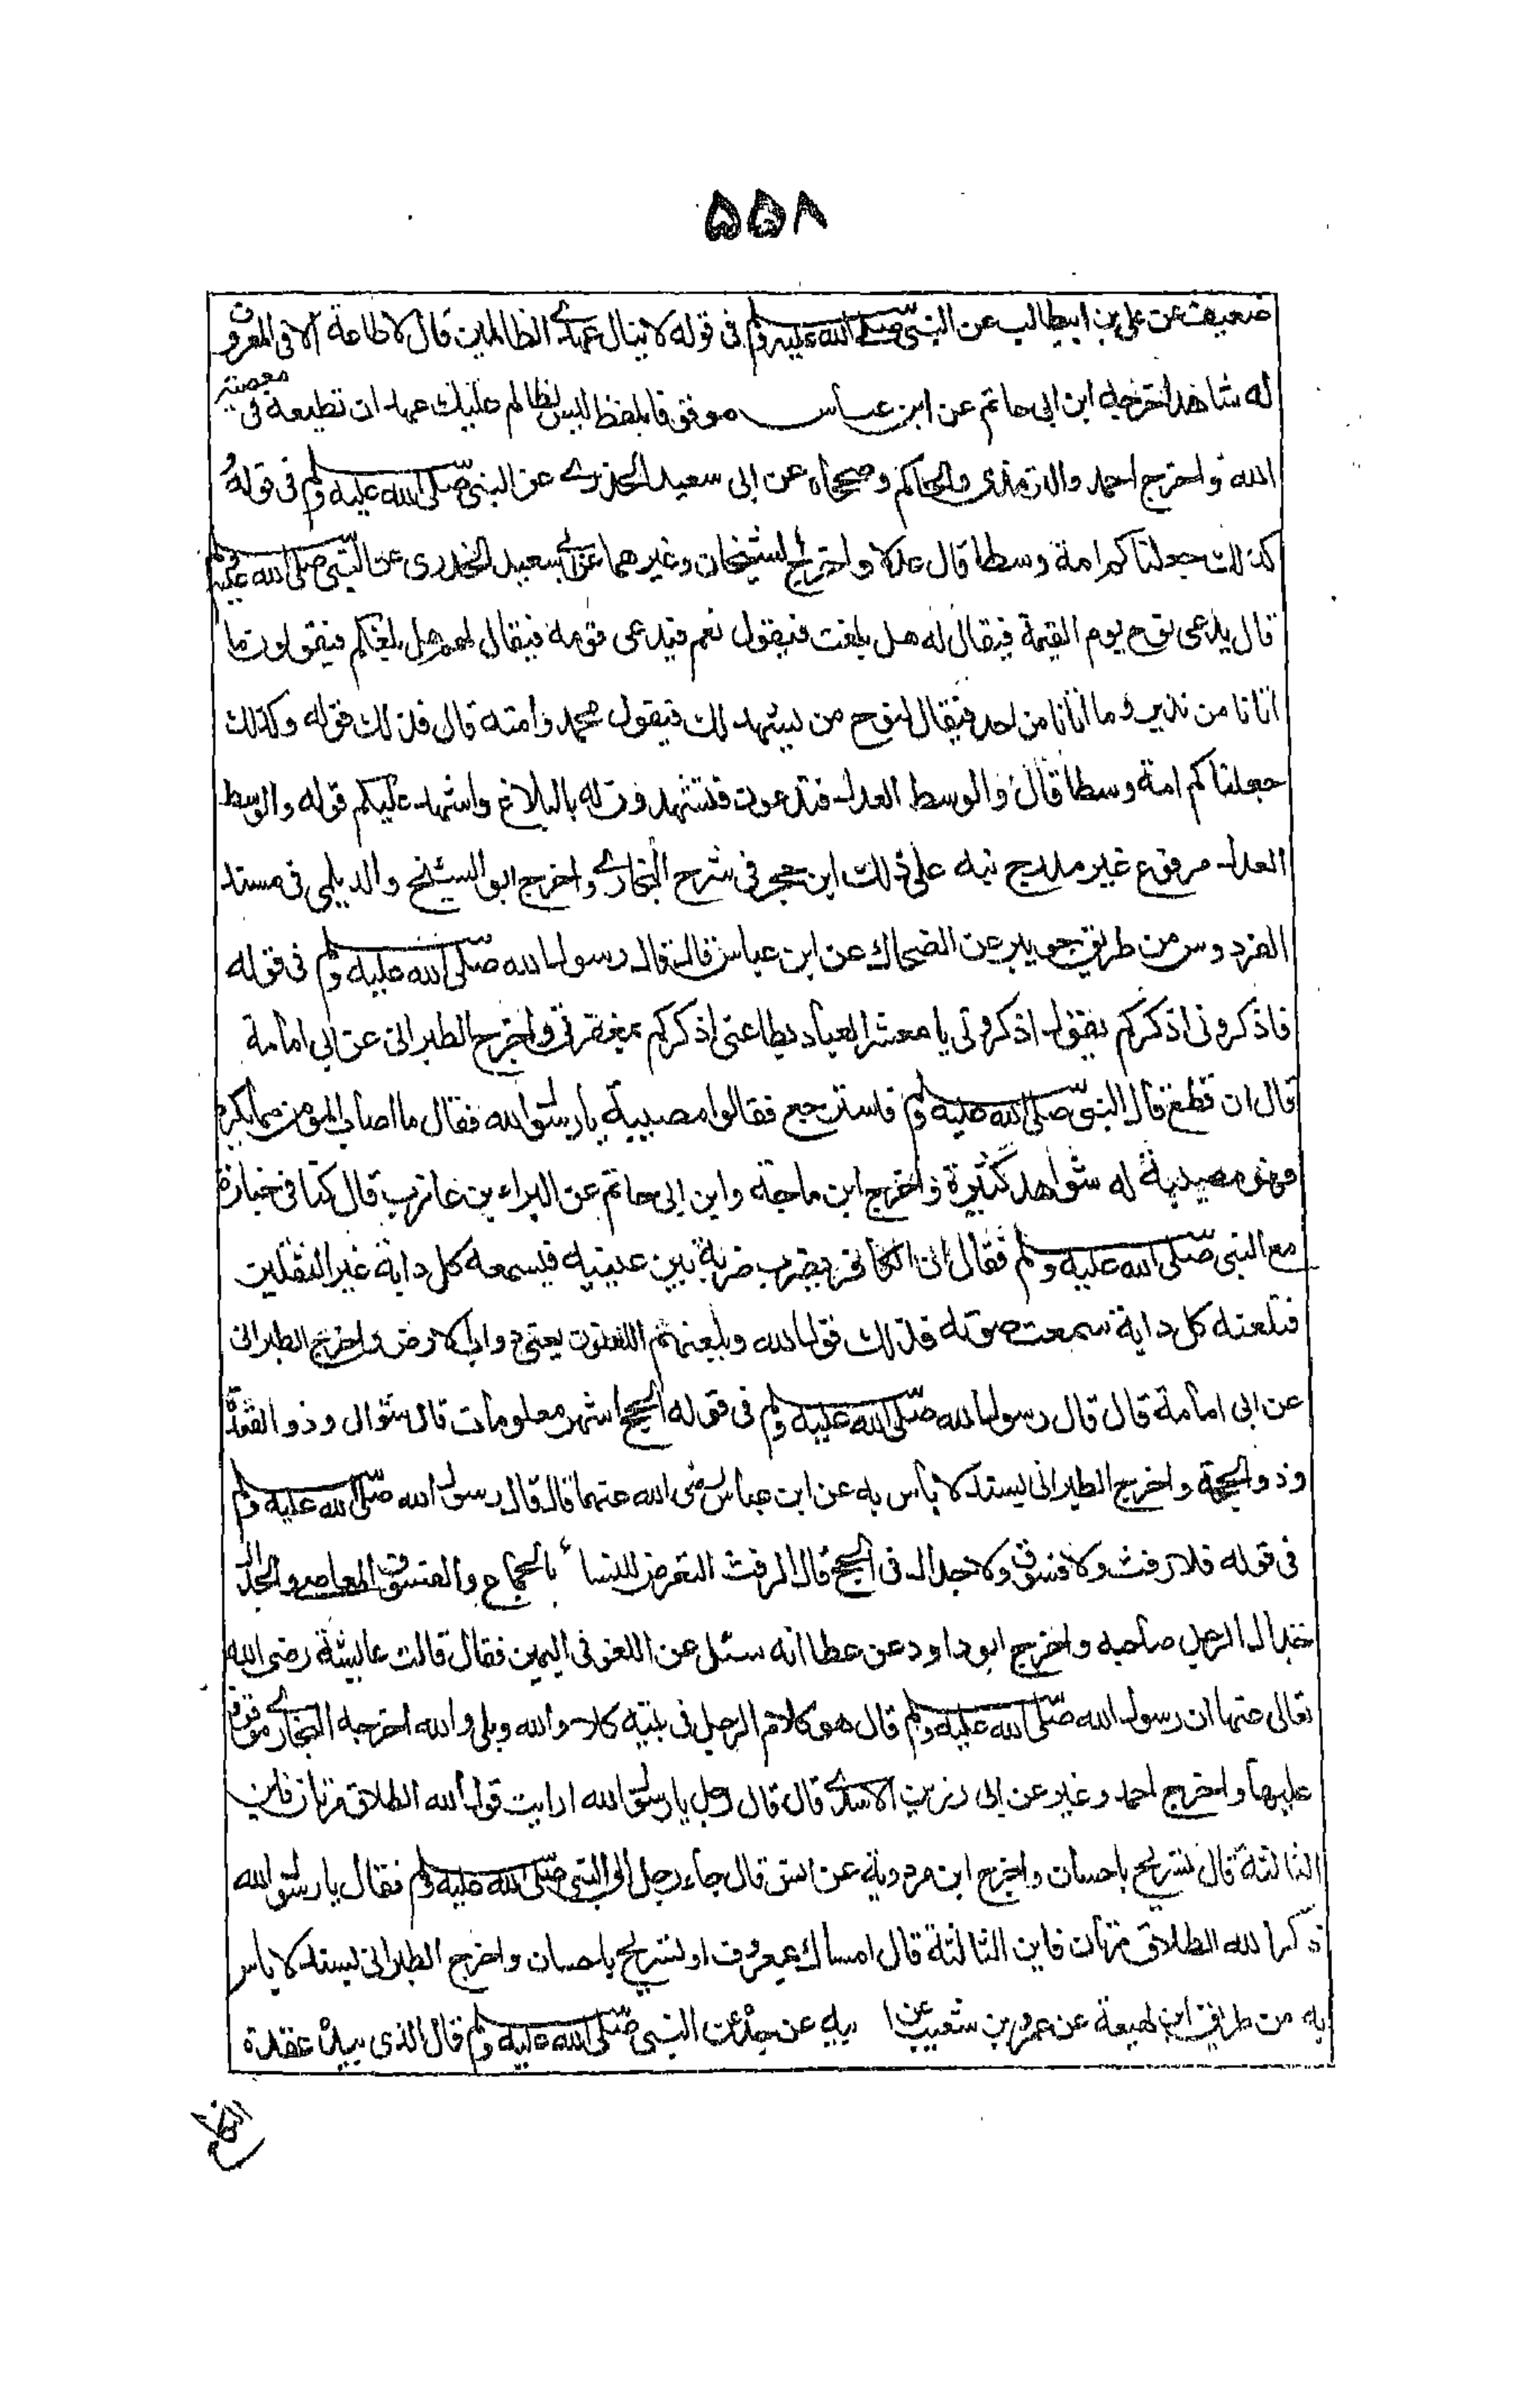 ۵۵۸
ضعيف عن علي بن ابيطالب عن النبي صلى الله عليه وسلم فى قوله لا ينال عهدى الظالمين قال لا طاعة الا فى المعروف
له شاهد اخرجه ابن ابى حاتم عن ابن عباس موقوفا بلفظ ليس لظالم عليك عهد ان تطيعه فى معصية
الله و اخرج احمد والترمذى والحاكم وصححاه عن ابى سعيد الخدرى عن النبى صلى الله عليه وسلم فى قوله و
كذلك جعلناكم امة وسطا قال عدلا واخرج الشيخان وغيرهما عن ابى سعيد الخدرى عن النبى صلى الله عليه وسلم
قال يدعى نوح يوم القيمة فيقال له هل بلغت فيقول نعم فيدعى قومه فيقال لهم هل بلغكم فيقولون ما
اتانا من نذير وما اتانا من احد فيقال لنوح من يشهد لك فيقول محمد وامته قال فذلك قوله وكذلك
جعلناكم امة وسطا قال والوسط العدل فتدعون فتشهدون له بالبلاغ واشهد عليكم قوله والوسط
العدل مرفوع غير مدرج نبه على ذلك ابن حجر فى شرح البخارى واخرج ابو الشيخ والديلمى فى مسند
الفردوس من طريق جويبر عن الضحاك عن ابن عباس قال قال رسول الله صلى الله عليه وسلم فى قوله
فاذكرونى اذكركم يقول اذكرونى يا معشر العباد بطاعتى اذكركم بمغفرتى واخرج الطبرانى عن ابى امامة
قال ان قطع قال النبى صلى الله عليه وسلم فاسترجع فقالوا مصيبة يا رسول الله فقال ما اصاب المومن مما يكره
فهو مصيبة له شواهد كثيرة واخرج ابن ماجة وابن ابى حاتم عن البراء بن عازب قال كنا فى جنازة
مع النبى صلى الله عليه وسلم فقال ان الكافر يضرب ضربة بين عينيه فيسمعه كل دابة غير الثقلين
فتلعنه كل دابة سمعت صوته فذلك قول الله ويلعنهم اللعنون يعنى دواب الارض واخرج الطبرانى
عن ابى امامة قال قال رسول الله صلى الله عليه وسلم فى قوله الحج اشهر معلومات قال شوال وذو القعدة
وذو الحجة واخرج الطبرانى بسند لا بأس به عن ابن عباس رضى الله عنهما قال قال رسول الله صلى الله عليه وسلم
فى قوله فلا رفث ولا فسوق ولا جدال فى الحج قال الرفث التعرض للنساء بالجماع والفسوق المعاصى والجدال
جدال الرجل صاحبه واخرج ابو داود عن عطا انه سئل عن اللغو فى اليمين فقال قالت عايشة رضى الله
تعالى عنها ان رسول الله صلى الله عليه وسلم قال هو كلام الرجل فى بيته كلا والله وبلى والله اخرجه البخارى موقوفا
عليها واخرج احمد وغيره عن ابى رزين الاسدى قال قال رجل يا رسول الله ارايت قول الله الطلاق مرتان فاين
الثالثة قال تسريح باحسان واخرج ابن مردوية عن انس قال جاء رجل الى النبى صلى الله عليه وسلم فقال يا رسول الله
ذكر الله الطلاق مرتان فاين الثالثة قال امساك بمعروف او تسريح باحسان واخرج الطبرانى بسند لا باس
به من طريق ابن لهيعة عن عمرو بن شعيب عن ابيه عن جده عن النبى صلى الله عليه وسلم قال الذى بيده عقدة
النكاح